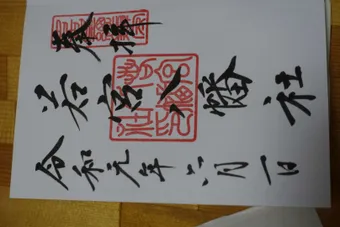 奉拝
若宮八幡社
令和元年六月一日